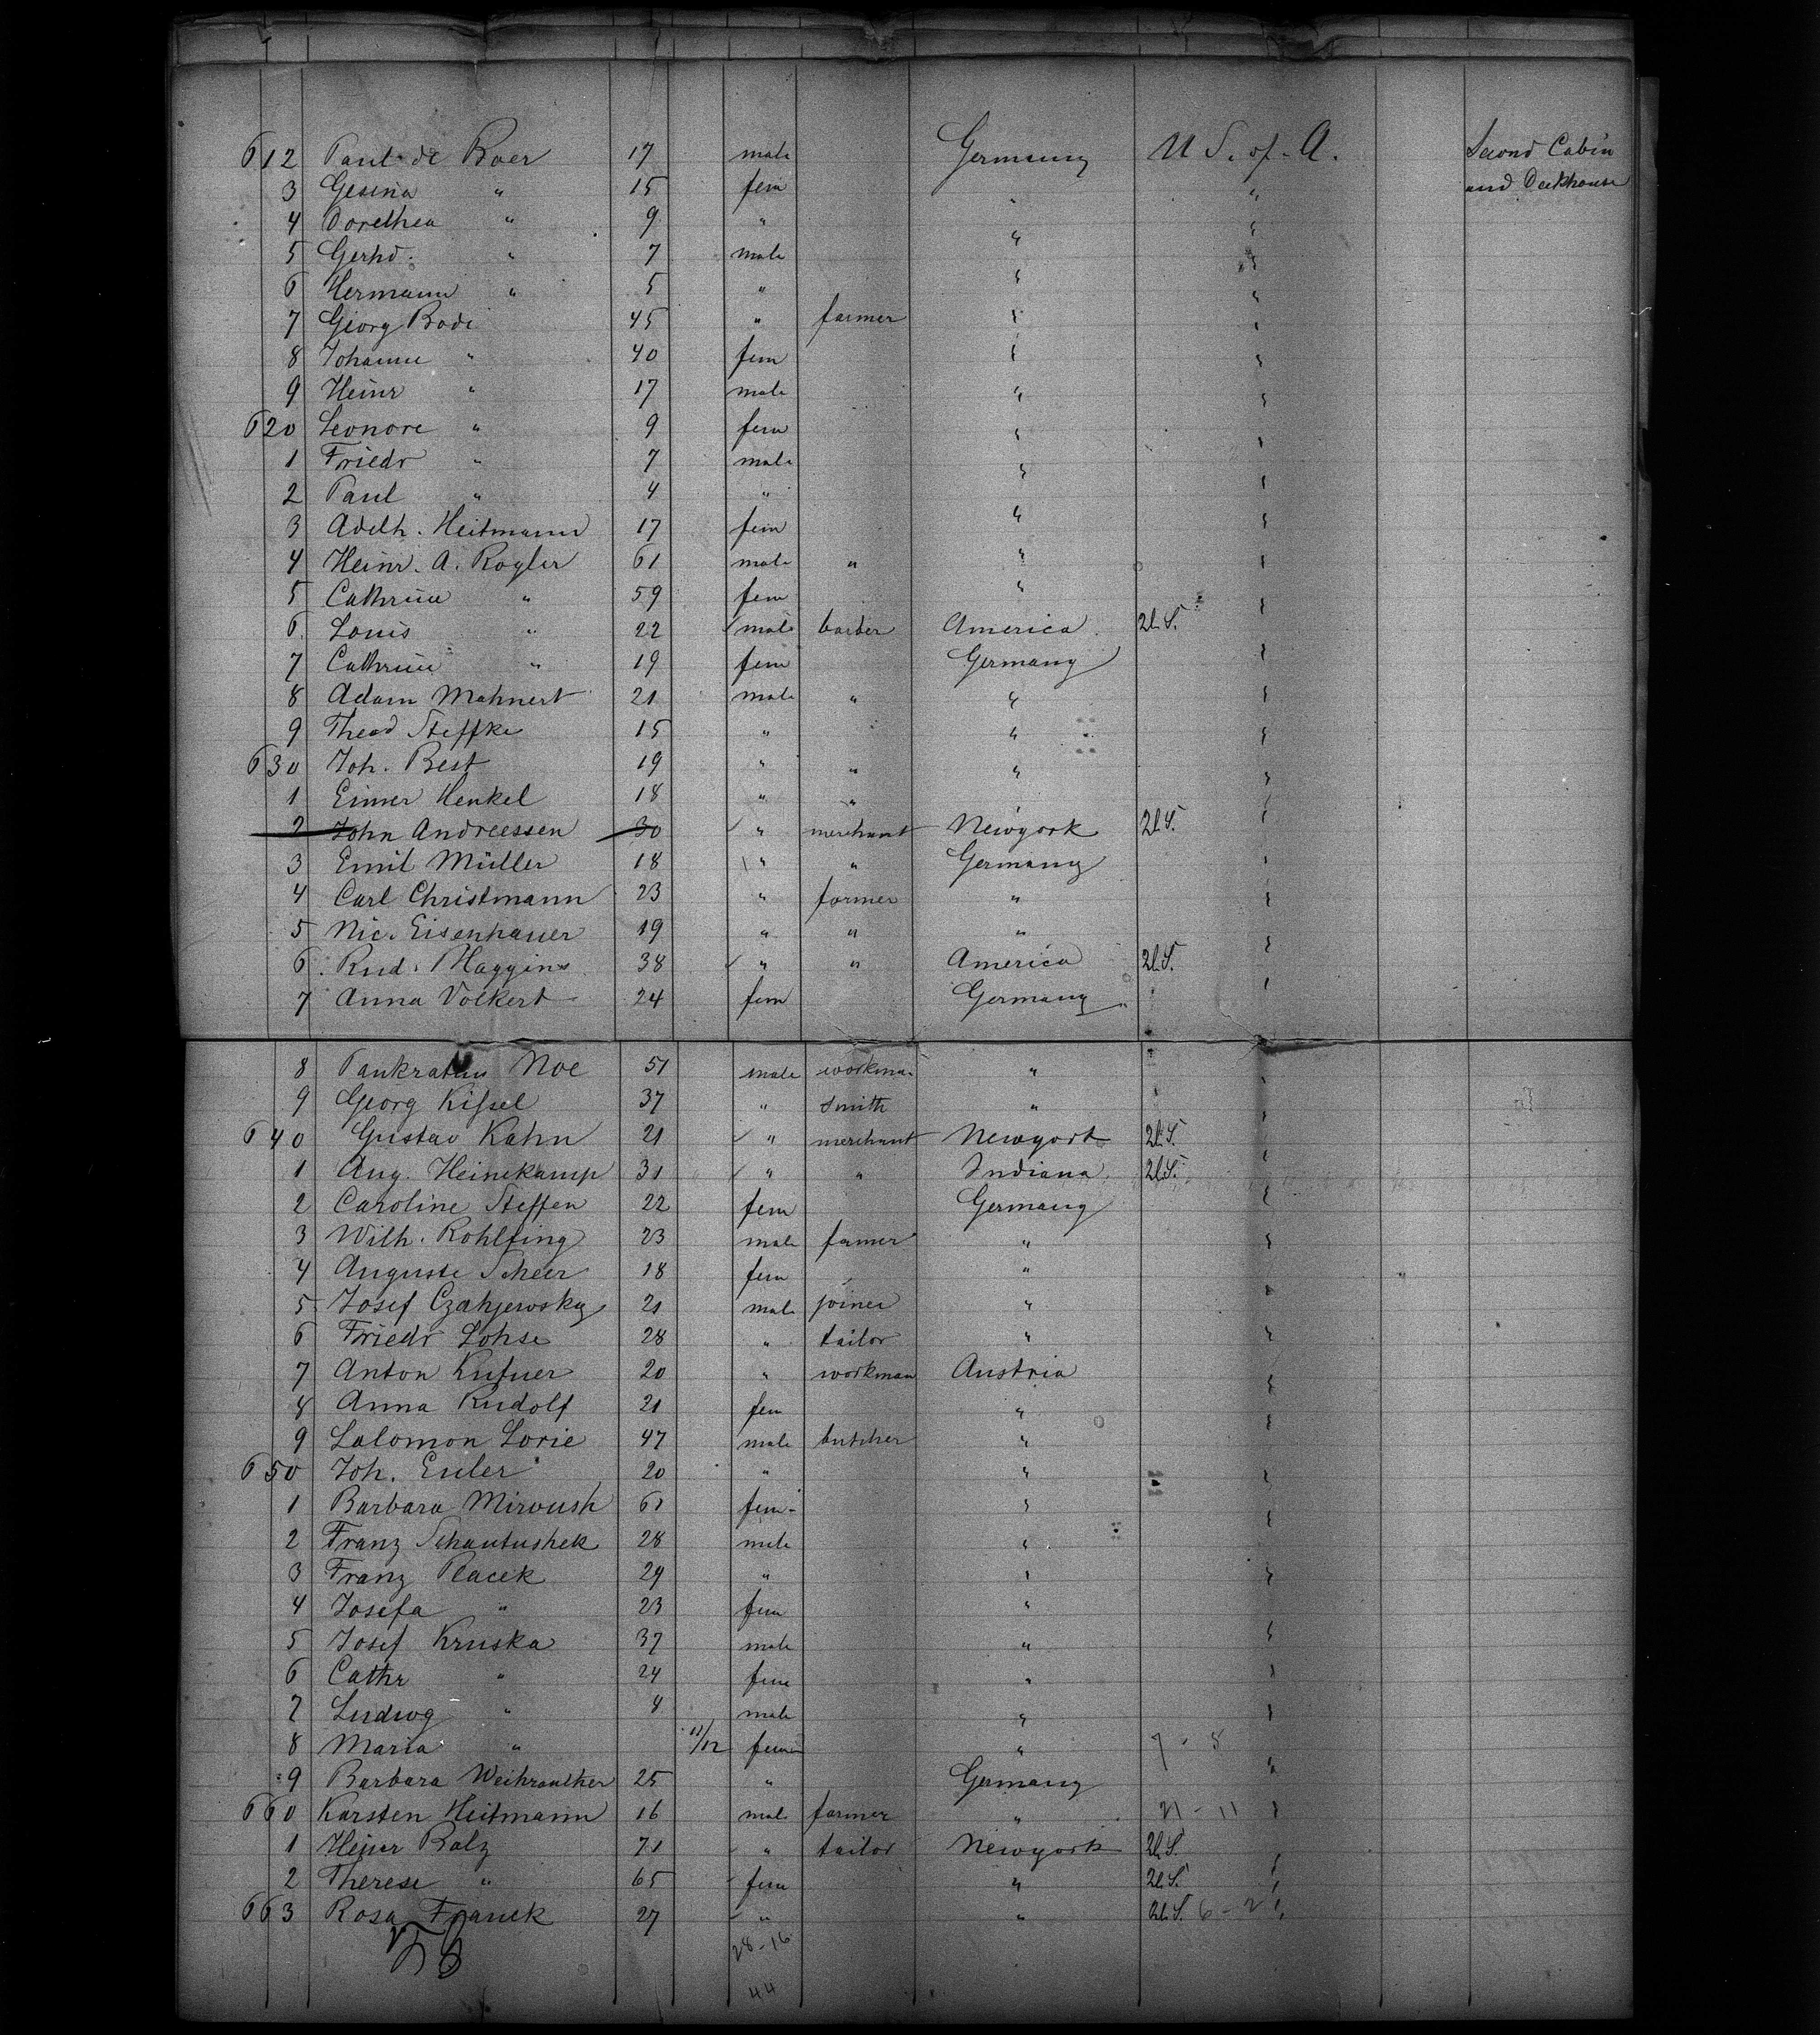 612 Paul de Boer 17 male Germany U S. of. A. Second Cabin
3 Gesina " 15 fem " " and Deckhouse
4 Dorethea " 9 " " "
5 Gerhd. " 7 male " "
6 Hermann " 5 " " "
7 Georg Bode 45 " farmer " "
8 Johanne " 40 fem " "
9 Heinr " 17 male " "
620 Leonore " 9 fem " "
1 Friedr " 7 male " "
2 Paul " 4 " " "
3 Adelh. Heitmann 17 fem " "
4 Heinr. A. Rogler 61 male " " "
5 Cathrine " 59 fem " "
6 Louis " 22 male barber America U.S. "
7 Cathrine " 19 fem Germany "
8 Adam Mahnert 21 male " " "
9 Theod Steffke 15 " " "
630 Joh. Best 19 " " " "
1 Eimer Henkel 18 " " " "
2 John Andreessen 30 " merchant Newyork U.S. "
3 Emil Müller 18 " " Germany "
4 Carl Christmann 23 " farmer " "
5 Nic. Eisenhauer 19 " " " "
6 Rud. Haggins 38 " " America U.S. "
7 Anna Volkert 24 fem Germany "
8 Pankratius Noe 51 male workman " "
9 Georg Kissel 37 " smith " "
640 Gustav Kahn 21 " merchant Newyork U.S. "
1 Aug. Heinekamp 31 " " Indiana U.S. "
2 Caroline Steffen 22 fem Germany "
3 Wilh. Rohlfing 23 male farmer " "
4 Auguste Scheer 18 fem " "
5 Josef Czahjewsky 21 male joiner " "
6 Friedr Lohse 28 " tailor " "
7 Anton Kufner 20 " workman Austria "
8 Anna Rudolf 21 fem " "
9 Salomon Lorie 47 male butcher " "
650 Joh. Euler 20 " " "
1 Barbara Miroush 61 fem " "
2 Franz Schautushek 28 male " "
3 Franz Placek 29 " " "
4 Josefa " 23 fem " "
5 Josef Kruska 37 male " "
6 Cathr " 24 fem " "
7 Ludwg " 8 male " "
8 Maria " 11/12 fem " 7 - 8
9 Barbara Weihrauther 25 " Germany "
660 Karsten Heitmann 16 male farmer " 21 - 11 "
1 Heinr Balz 71 " tailor Newyork U.S.
2 Therese " 65 fem " U.S. "
663 Rosa Franck 27 " " U.S. 6 - 2 "
28-16
44